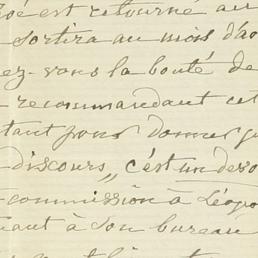 est retourné au
sortira au mois d'ao
ez-vous la bonté de
recommandant cet
tant pour donner
discours„ c'est un devo
commission à Léopo
ant à son bureau